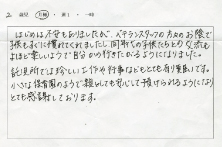 2 歳児 ・ 万縄 ・ 週1 ・ 一時
はじめは不安もありましたが、ベテランスタッフの方々のお陰で
子供もすぐに慣れてくれましたし、同年代の子供たちとの交流も
よほど楽しいようで自分から行きたがるようになりました。
託児所では珍しい工作や行事などもとても有り難いです。
小さな保育園のようで親としても安心して預けられるようになり
とても感謝しております。